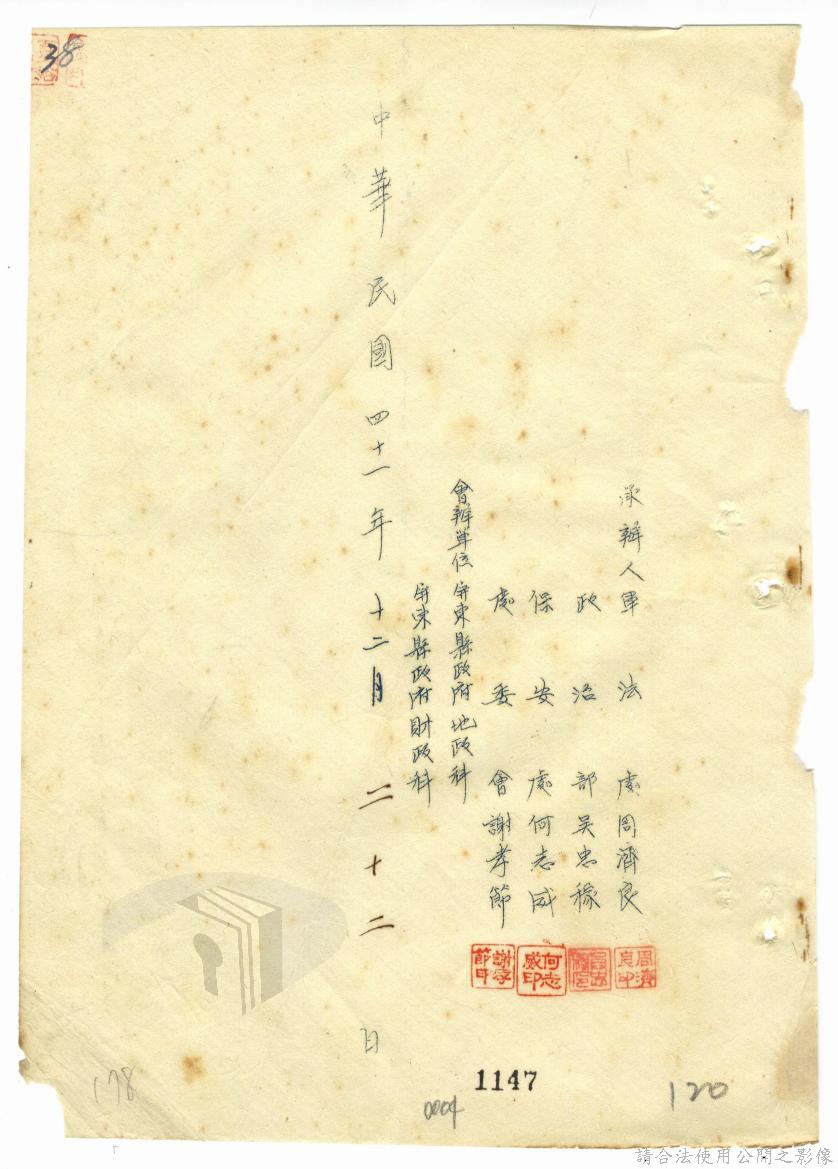 38
承辦人軍法處周濟良
政治部吳忠稼
保安處何志威
處委會謝孝節
會辦單位屏東縣政府地政科
屏東縣政府財政科
中華民國四十一年十二月二十二日
周濟良印
何志威印
謝孝節印
1147
0004
120
178
請合法使用公開之影像